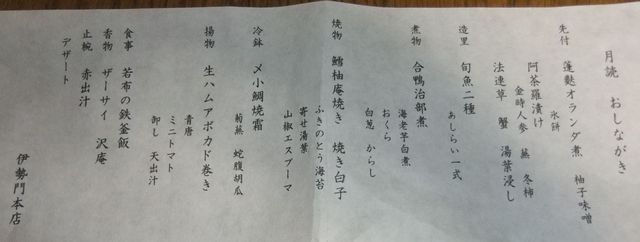 月読　おしながき
先付　蓬麩オランダ煮　柚子味噌
氷餅
阿茶羅漬け
金時人参　蕪　冬柿
法連草　蟹　湯葉浸し
造里　旬魚二種
あしらい一式
煮物　合鴨治部煮
海老芋白煮
おくら
白葱　からし
焼物　鱈柚庵焼き　焼き白子
ふきのとう海苔
寄せ湯葉
山椒エスプーマ
冷鉢　〆小鯛焼霜
菊蕪　蛇腹胡瓜
揚物　生ハムアボカド巻き
青唐
ミニトマト
卸し　天出汁
食事　若布の鉄釜飯
香物　ザーサイ　沢庵
止椀　赤出汁
デザート
伊勢門本店